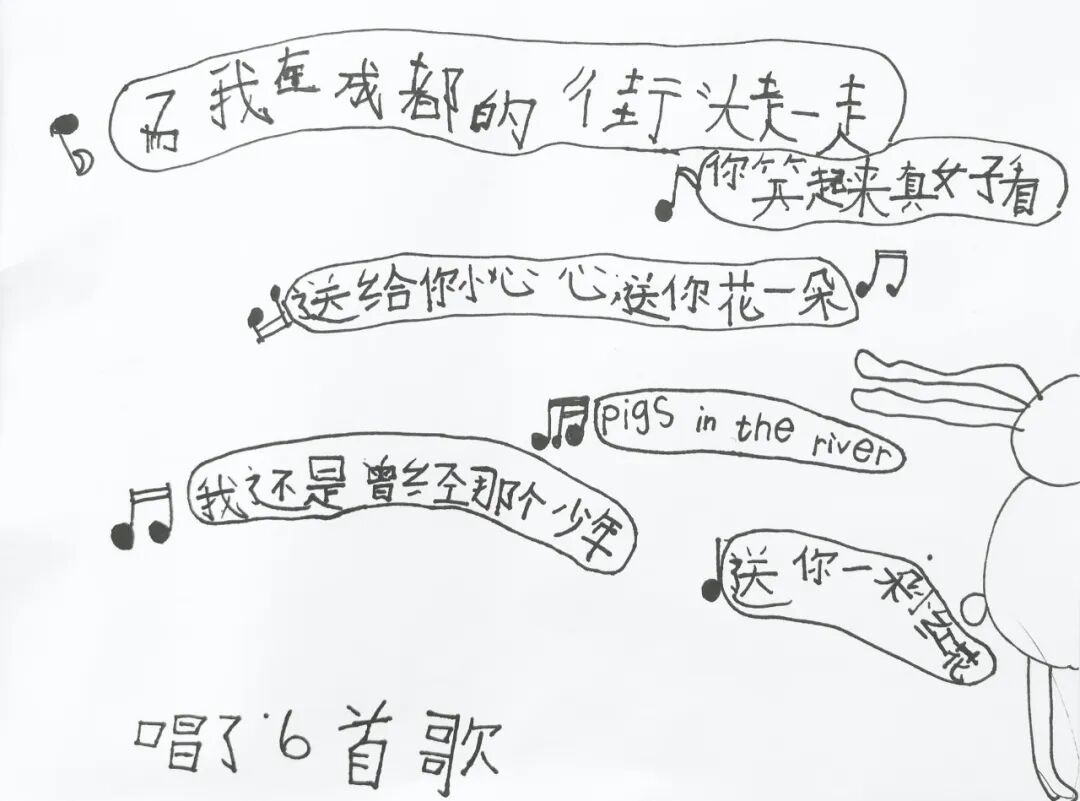 我在成都的街头走一走
你笑起来真好看
送给你小心心送你花一朵
pigs in the river
我还是曾经那个少年
送你一朵小红花
唱了6首歌